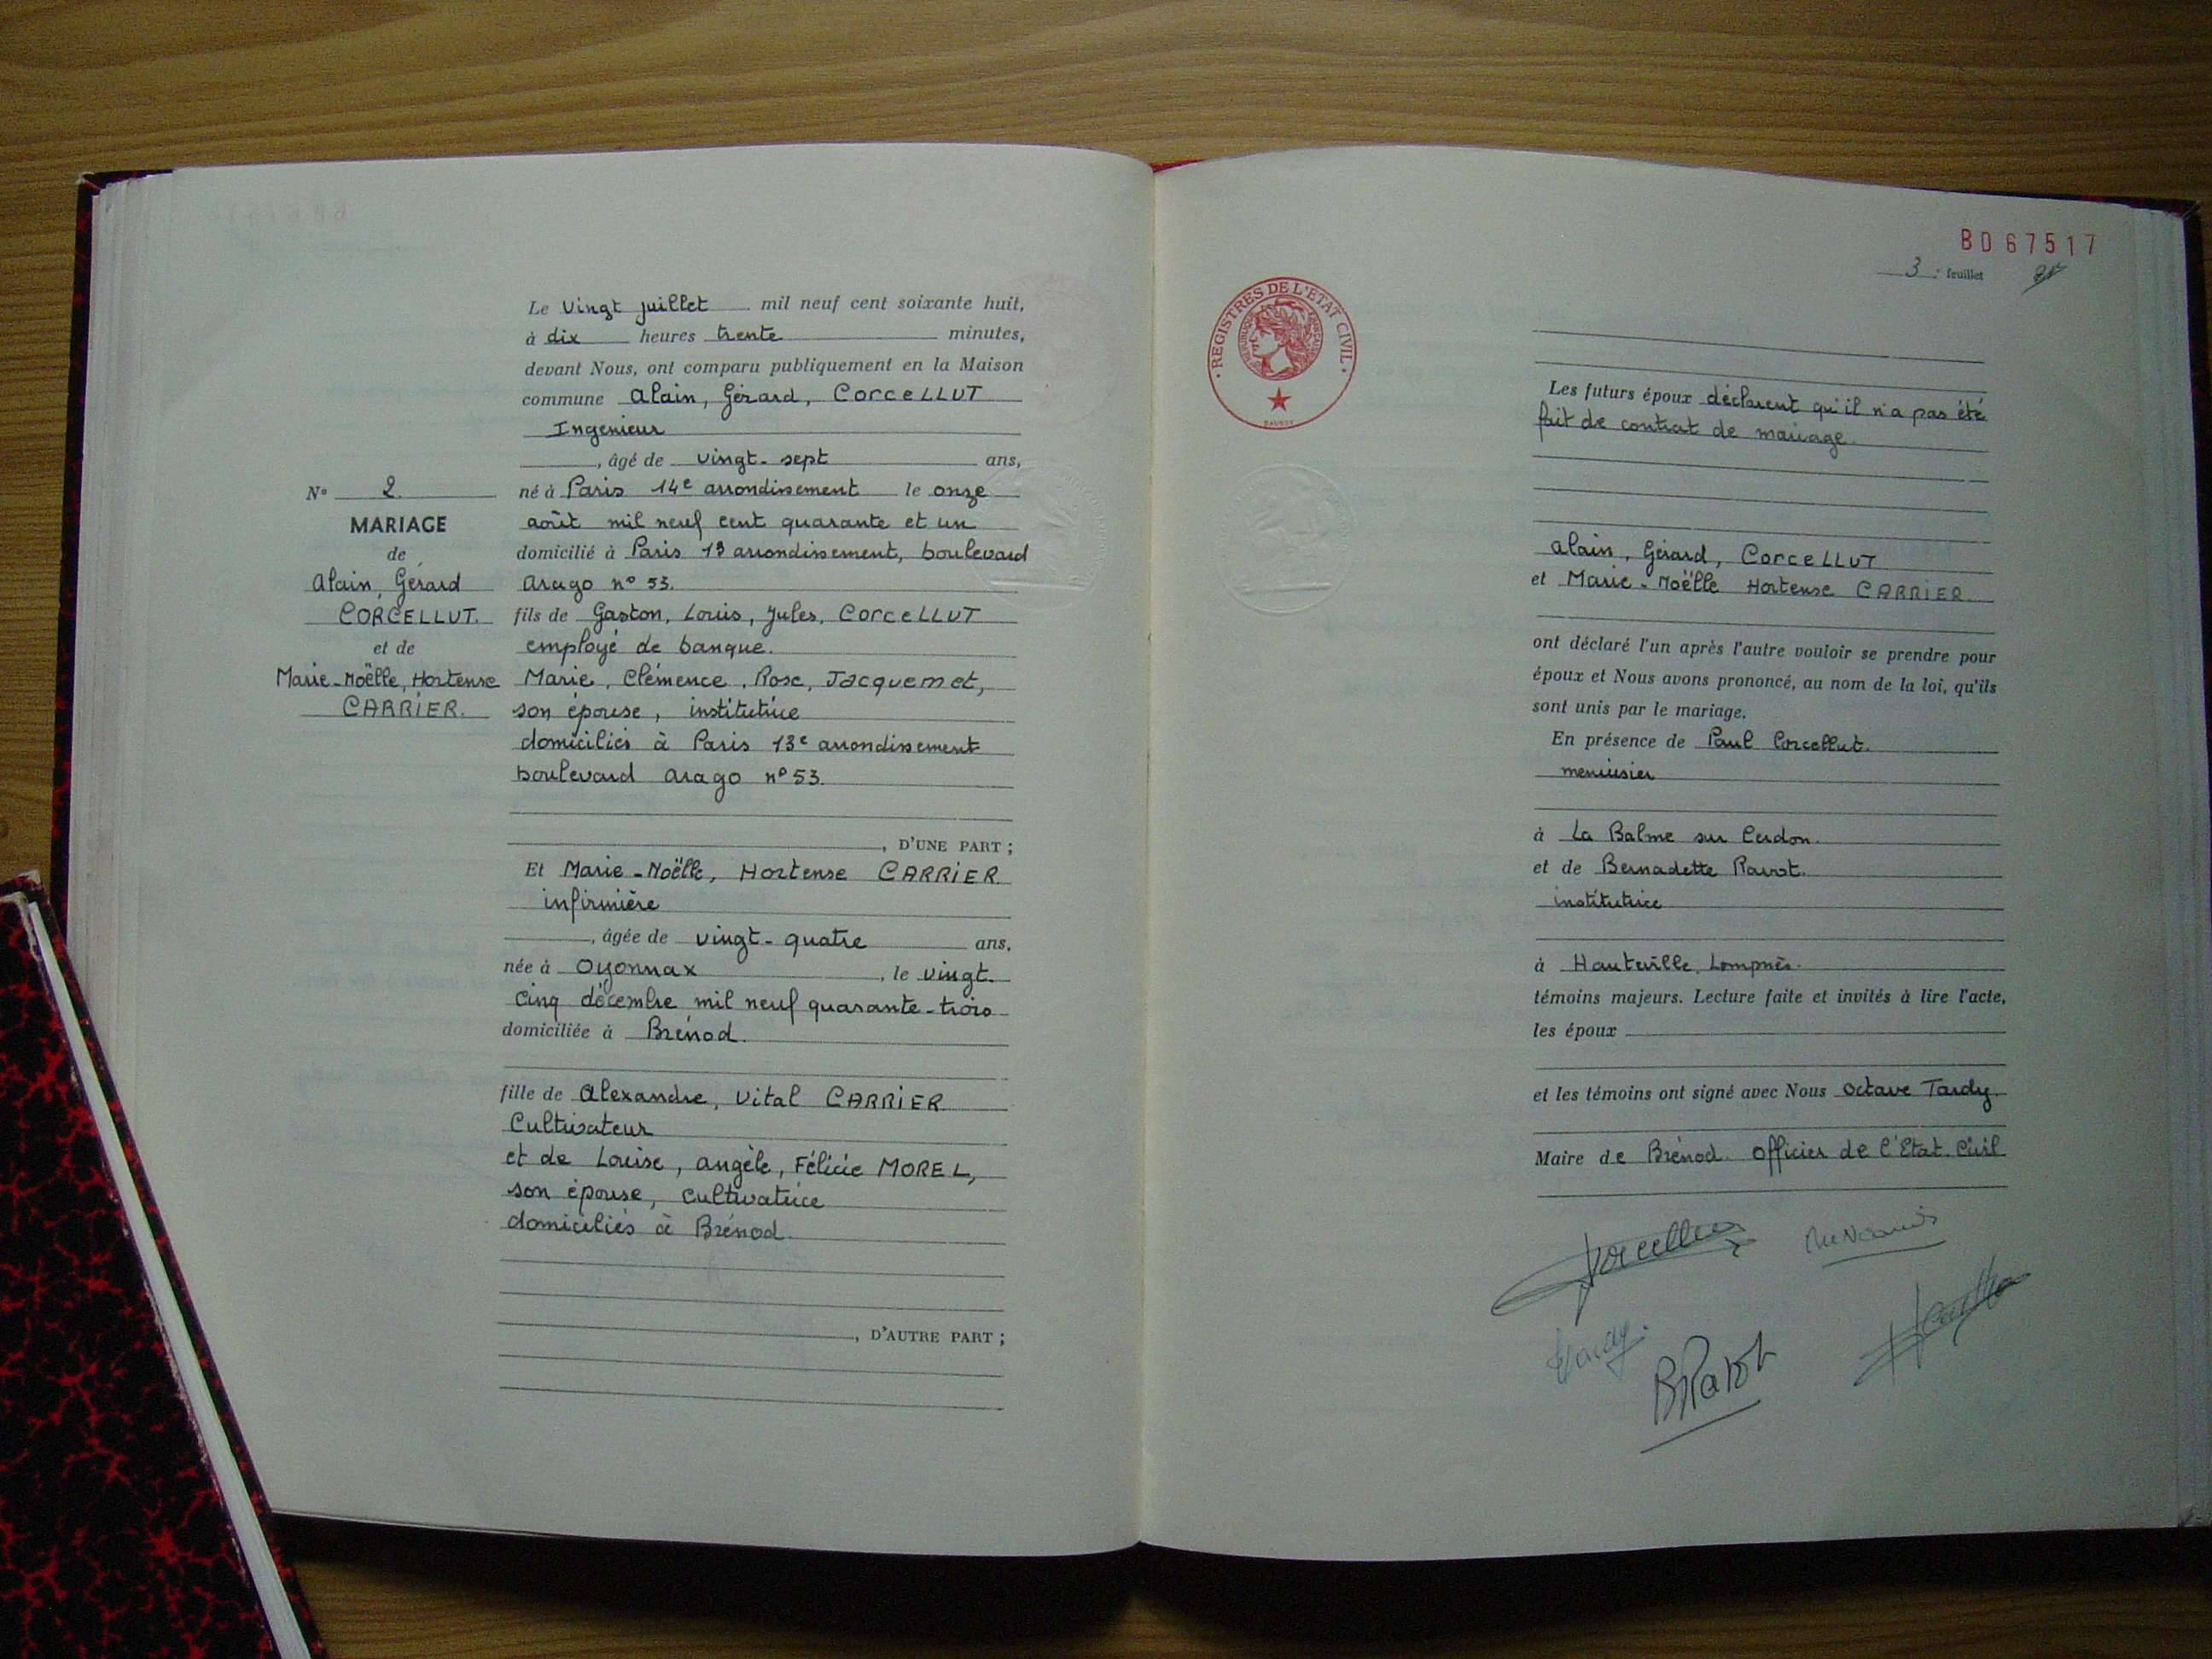 Le vingt juillet mil neuf cent soixante huit,
à dix heures trente minutes,
devant Nous, ont comparu publiquement en la Maison
commune Alain, Gérard, CORCELLUT
Ingénieur
, âgé de vingt-sept ans,
né à Paris 14e arrondissement le onze
août mil neuf cent quarante et un
domicilié à Paris 13 arrondissement, boulevard
Arago n° 53.
fils de Gaston, Louis, Jules, CORCELLUT
employé de banque.
Marie, Clémence, Rose, Jacquemet,
son épouse, institutrice
domiciliés à Paris 13e arrondissement
boulevard Arago n° 53.
, D'UNE PART ;
Et Marie-Noëlle, Hortense CARRIER
infirmière
, âgée de vingt-quatre ans,
née à Oyonnax , le vingt-
cinq décembre mil neuf quarante-trois
domiciliée à Brénod.
fille de Alexandre, Vital CARRIER
Cultivateur
et de Louise, Angèle, Félicie MOREL,
son épouse, cultivatrice
domiciliés à Brénod.
, D'AUTRE PART ;
N° 2
MARIAGE
de
Alain, Gérard
CORCELLUT.
et de
Marie-Noëlle, Hortense
CARRIER.
BD 67517
3e feuillet
REGISTRES DE L'ETAT CIVIL
Les futurs époux déclarent qu'il n'a pas été
fait de contrat de mariage.
Alain, Gérard, CORCELLUT
et Marie-Noëlle Hortense CARRIER
ont déclaré l'un après l'autre vouloir se prendre pour
époux et Nous avons prononcé, au nom de la loi, qu'ils
sont unis par le mariage.
En présence de Paul Corcellut.
menuisier
à La Balme sur Cerdon.
et de Bernadette Ravot.
institutrice
à Hauteville. Lompnès.
témoins majeurs. Lecture faite et invités à lire l'acte,
les époux
et les témoins ont signé avec Nous Octave Tardy
Maire de Brénod. Officier de l'Etat. Civil
Tardy.
BRavot